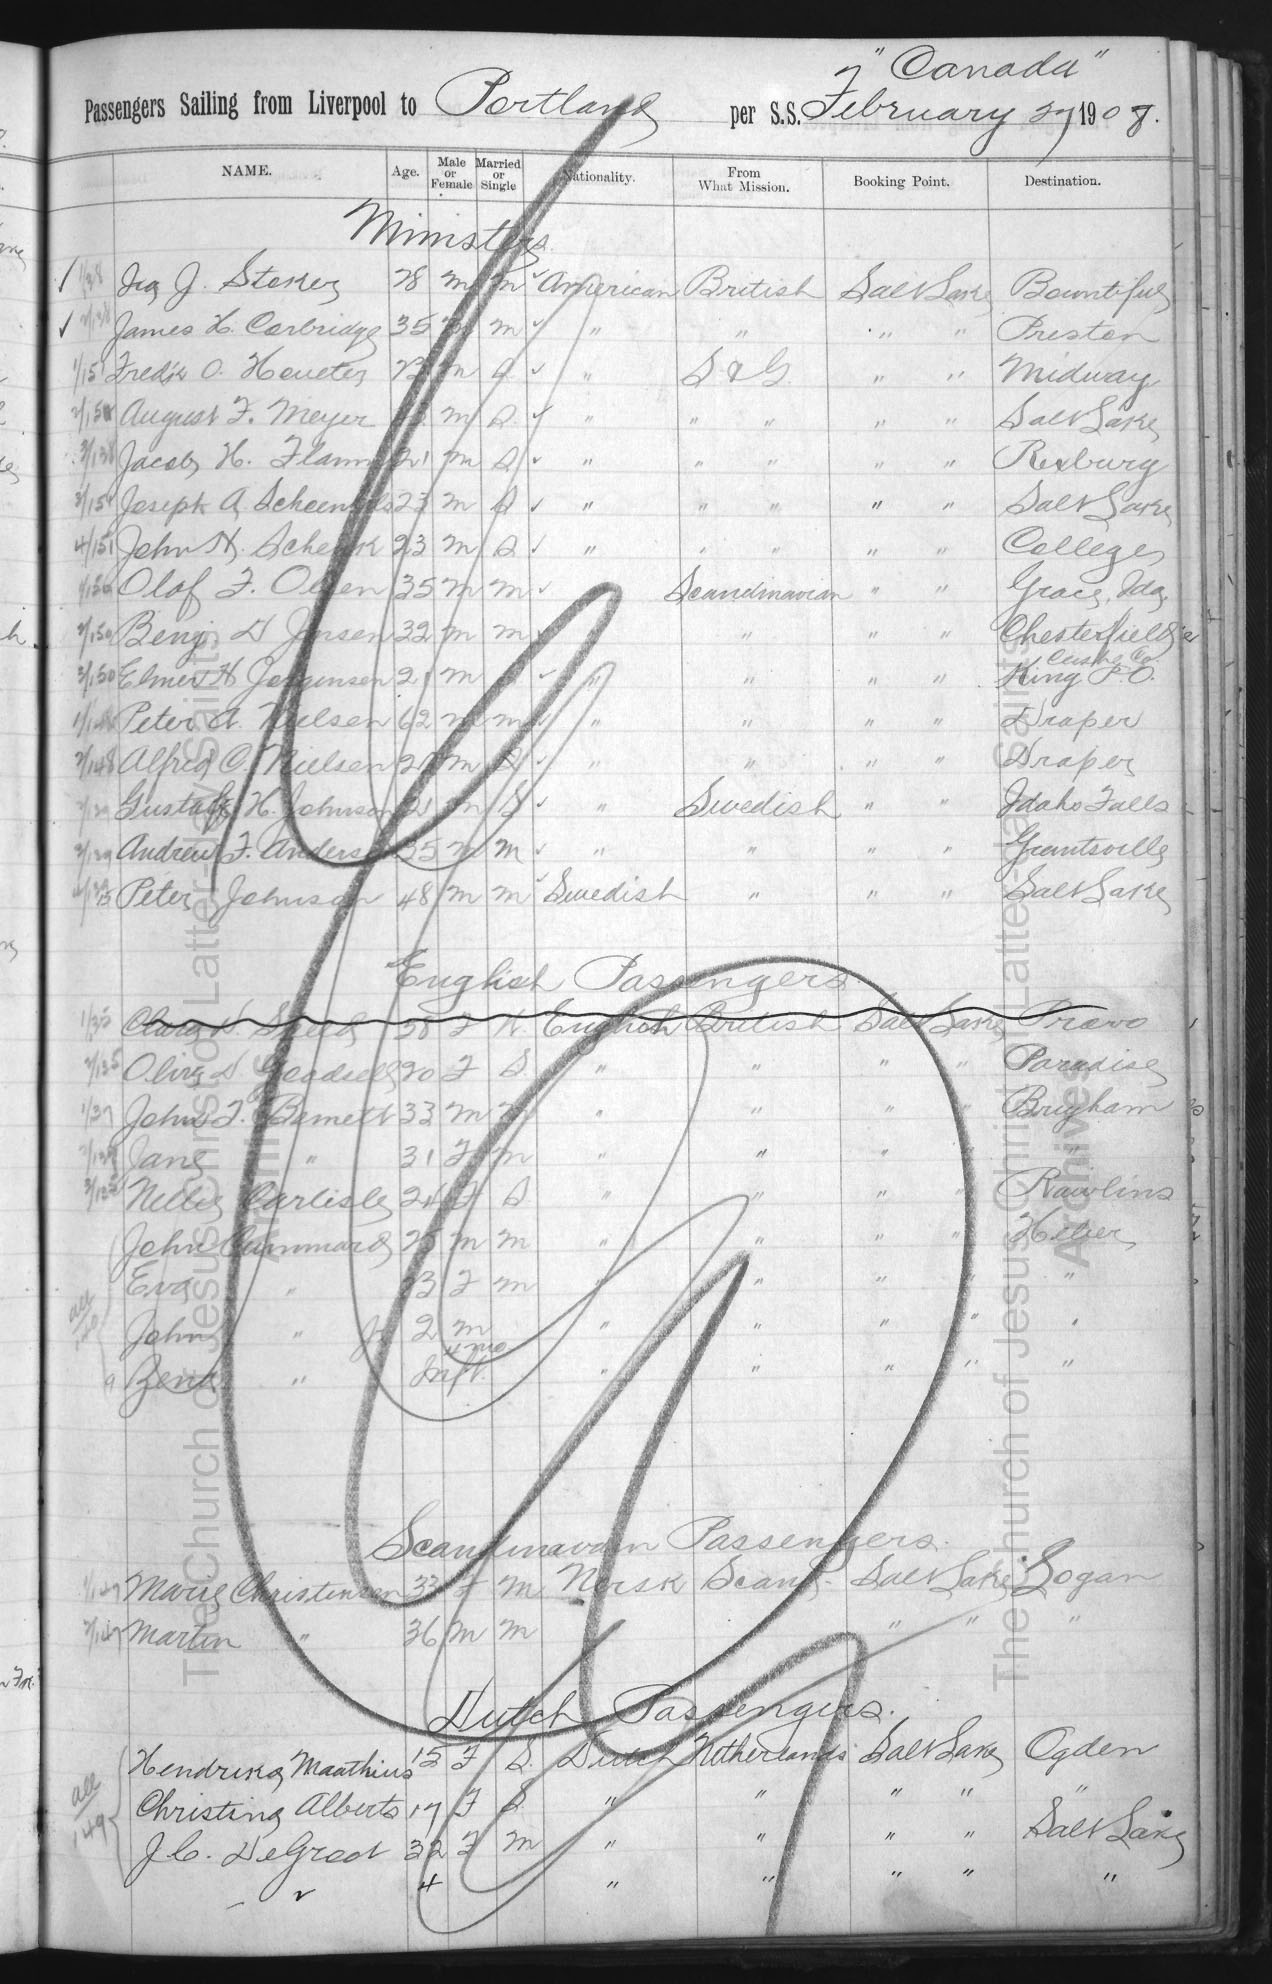 "Canada"
Passengers Sailing from Liverpool to Portland per S.S. February 27 1908.
NAME. Age. Male or Female Married or Single Nationality. From What Mission. Booking Point. Destination.
Ministers
Ira J. Stoker 28 m m American British Salt Lake Bountiful
James H. Corbridge 35 m m " " " " Preston
1/151 Fredk O. Haueter 23 m S " S & G. " " Midway
2/151 August F. Meyer m S " " " " " Salt Lake
3/138 Jacob H. Flamm 21 m S " " " " " Rexburg
3/151 Joseph A. 23 m S " " " " " Salt Lake
4/151 John H. Schenk 23 m S " " " " " College
Olof F. Olsen 35 m m Scandinavian " " Grace, Ida
2/150 Benj. D Jensen 32 m m " " " Chesterfield
3/150 Elmer H Jorgensen 21 m " " " " King P.O. Co.
Peter A. Nielsen 62 m m " " " " Draper
2/148 Alfred C. Nielsen m S " " " " Draper
Gustaf H. Johnson 21 m S " Swedish " " Idaho Falls
Andrew F. Anderson 35 m m " " " " Grantsville
Peter Johnson 48 m m Swedish " " " Salt Lake
English Passengers.
58 F W. English British Salt Lake Provo
2/135 Olive D. 20 F S " " " " Paradise
1/37 John F. Barnett 33 m m " " " " Brigham
Jane " 31 F m " " " "
Nellie Carlisle 24 F S " " " " Rawlins
John 25 m m " " " " Helper
Eva " 23 F m " " " "
John " Jr 2 m " " " " "
4 mo
" Inft. " " " " "
Scandinavian Passengers.
Marie Christensen 33 F m Norsk Scand. Salt Lake Logan
2/147 Martin " 36 m m " " "
Dutch Passengers.
Hendrika Maathius 15 F S. Dutch Netherlands Salt Lake Ogden
all Christina Alberts 17 F S. " " " " "
149 J.C. DeGroot 32 F m " " " " Salt Lake
" 4 " " " " "
The Church of Jesus Christ of Latter-day Saints
Archives
The Church of Jesus Christ of Latter-day Saints
Archives